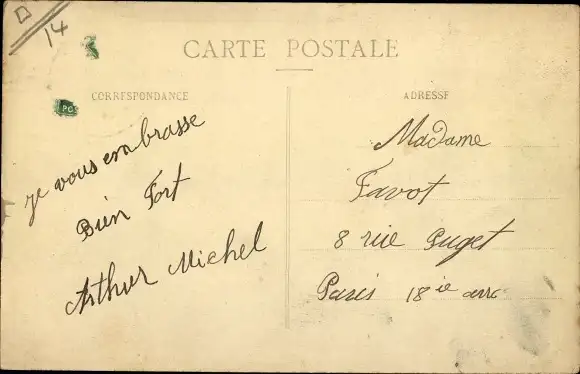 14
CARTE POSTALE
CORRESPONDANCE
je vous embrasse
Bien Fort
Arthur Michel
ADRESSE
Madame
Favot
8 rue Puget
Paris 18ie arrc